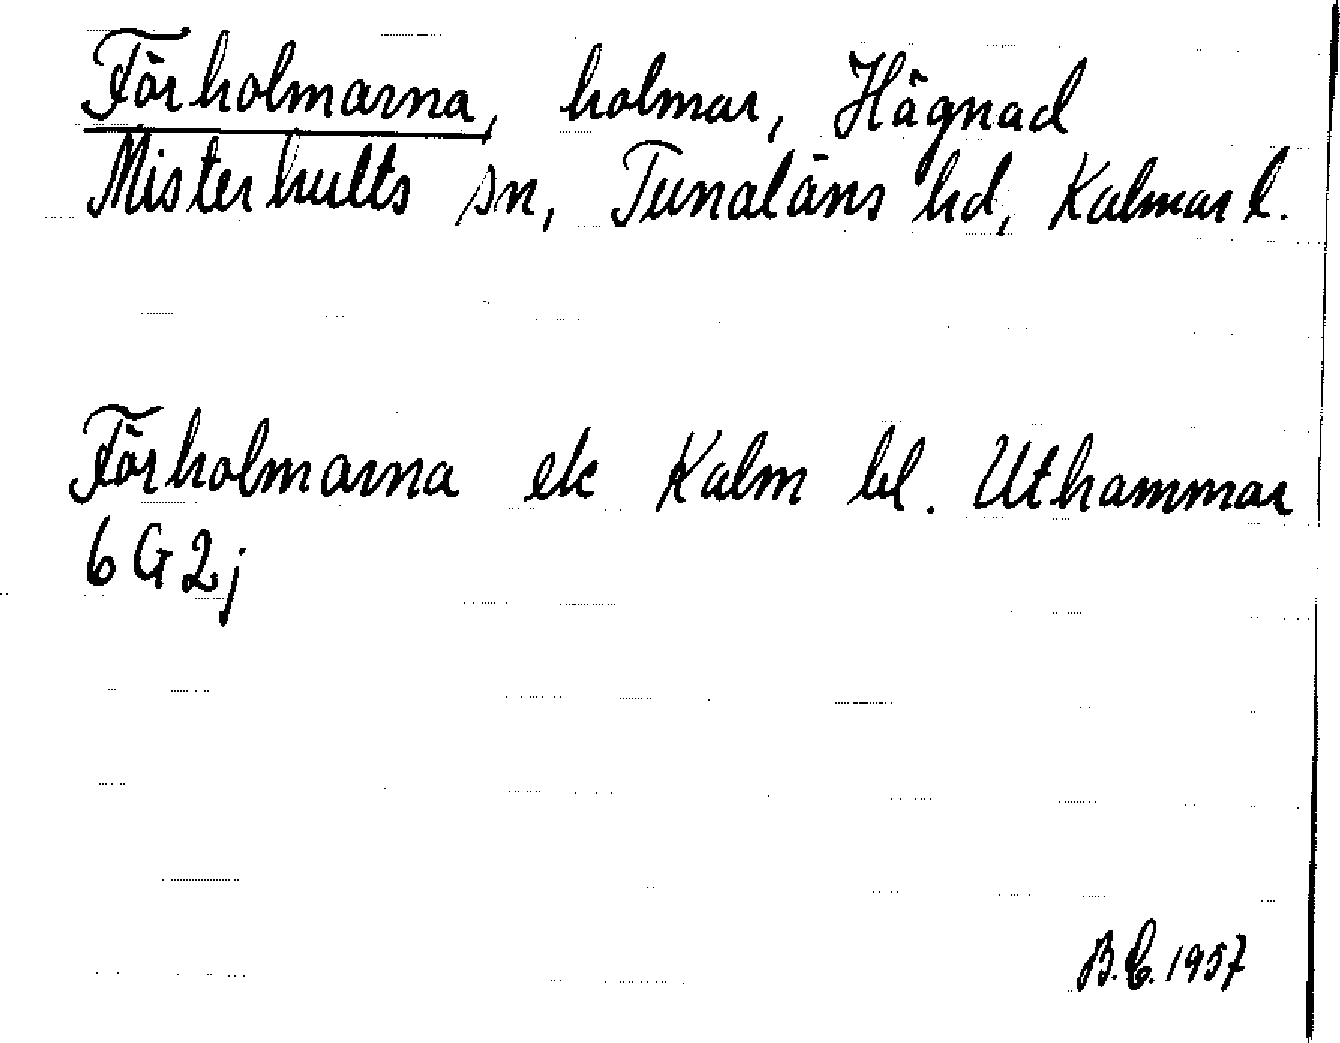 Förholmarna, holmar, Hägnad
Misterhults sn, Tunaläns hd, Kalmar l.
Förholmarna ek Kalm bl. Uthammar
6 G 2 j
B.E. 1957